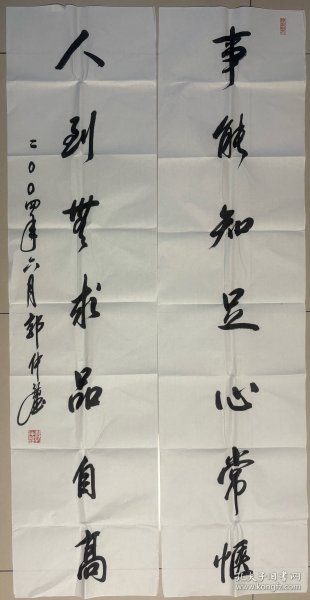 事能知足心常惬
人到无求品自高
二〇〇四年六月郭仲
孔夫子旧书网